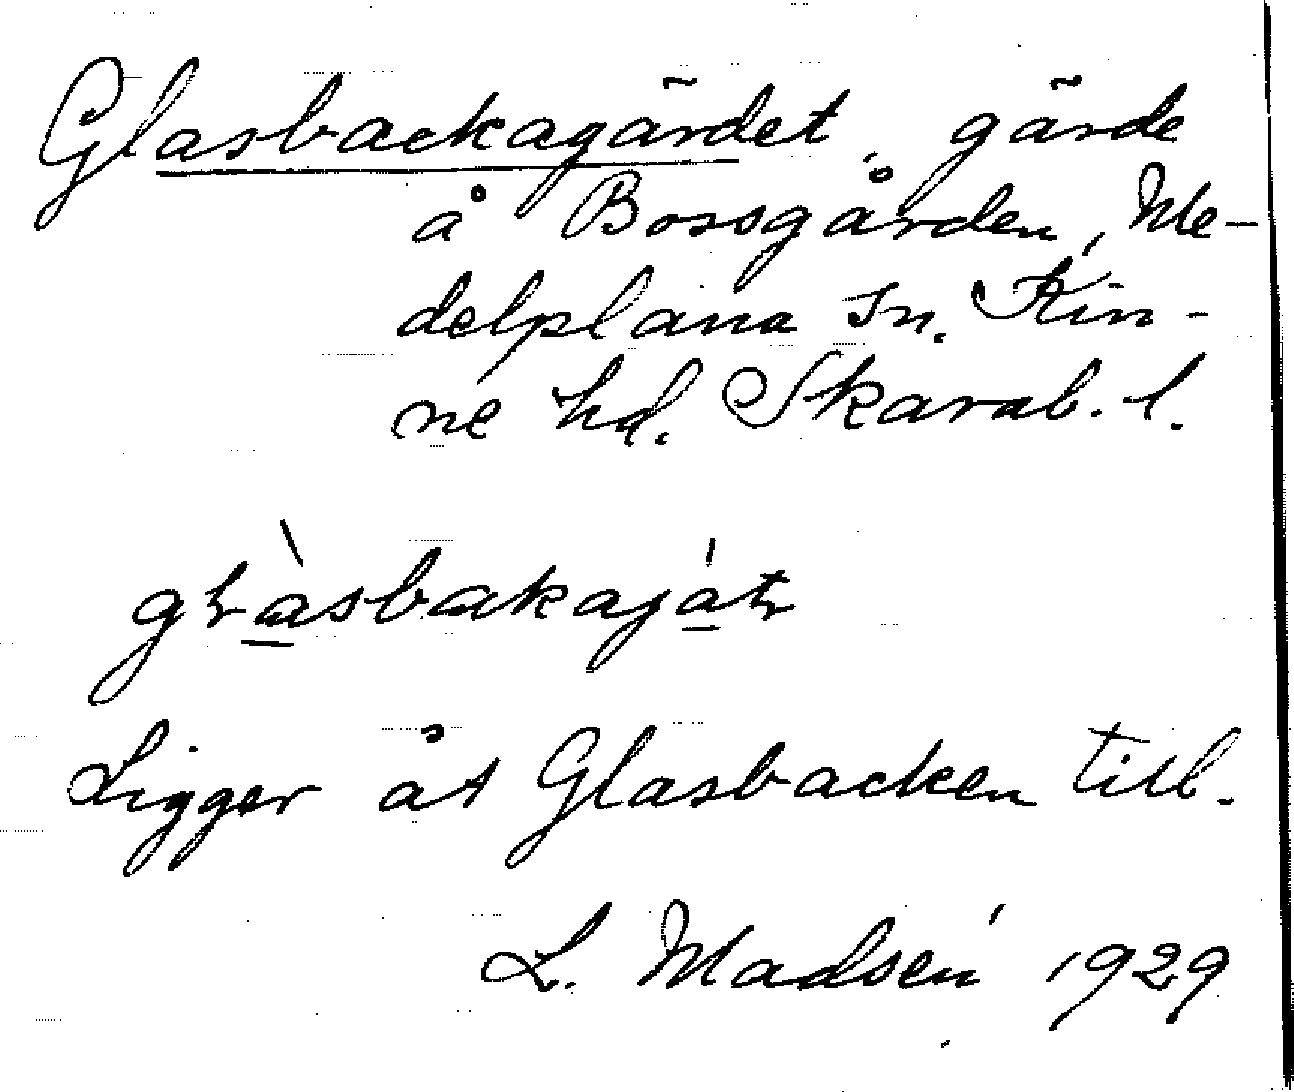 Glasbackagärdet, gärde
å Bossgården, Me-
delplana sn. Kin-
ne hd. Skarab. l.
Ligger åt Glasbacken till.
L. Madsén 1929